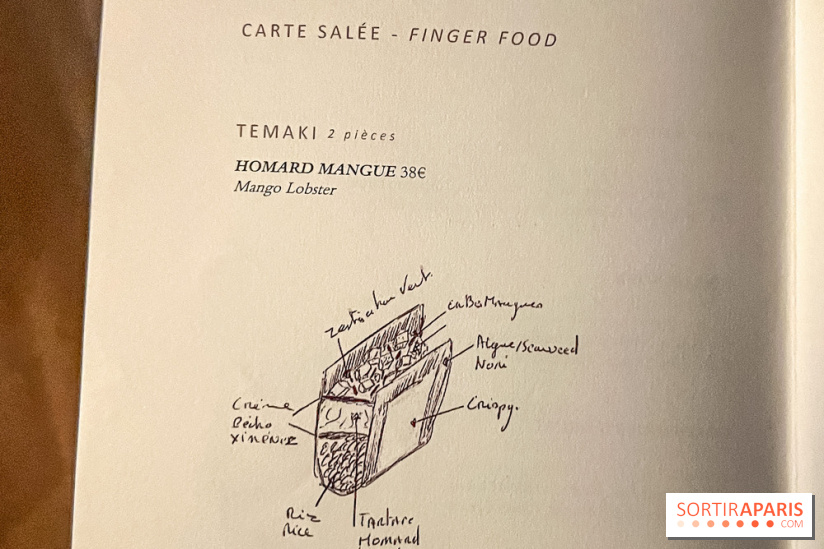 CARTE SALÉE - FINGER FOOD
TEMAKI 2 pièces
HOMARD MANGUE 38€
Mango Lobster
zestes citron vert.
CuBes Mangues
Algue/Seaweed
Nori
Crispy.
Crème
XIMÉNEZ
Riz
Rice
Tartare
Homard
SORTIRAPARIS
.COM